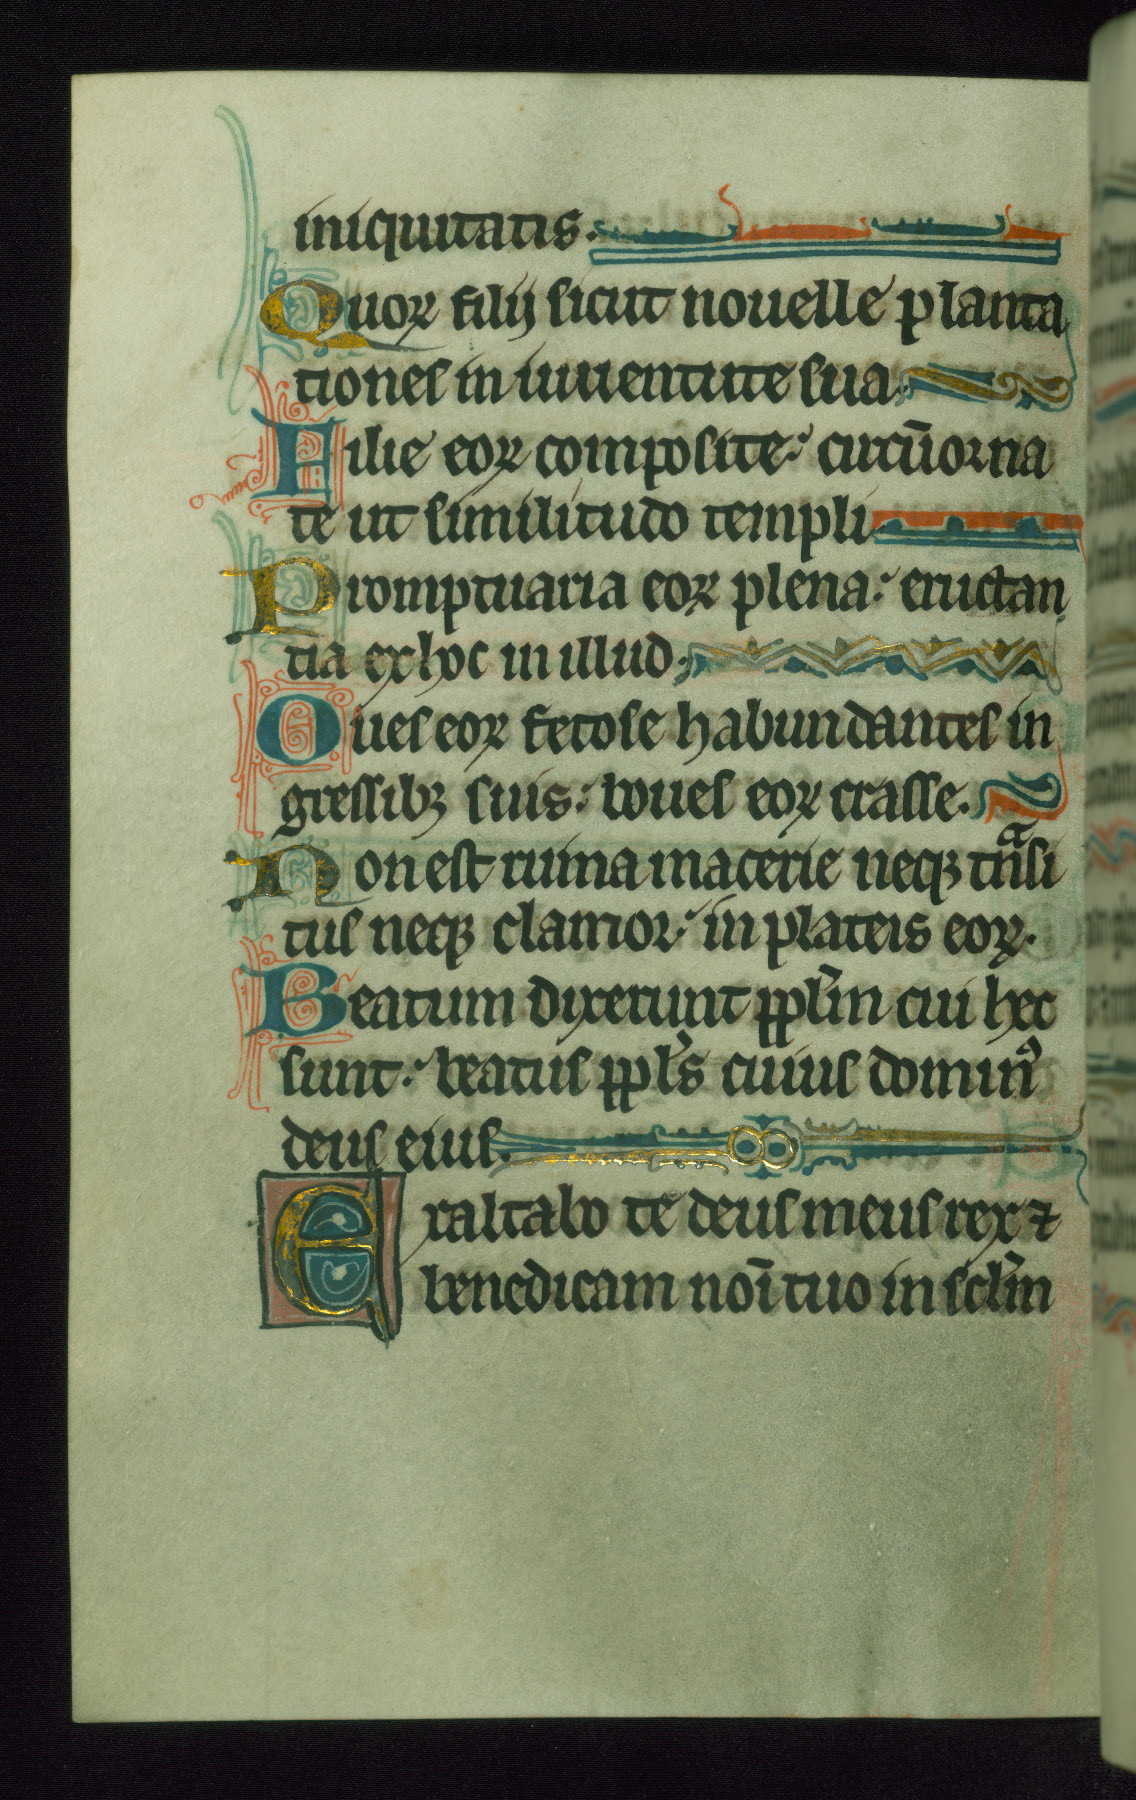 iniquitatis.
Quoꝝ filij sicut nouelle planta
tiones in iuuentute sua.
Filie eoꝝ composite: circūorna
te ut similitudo templi.
Promptuaria eoꝝ plena: eructan
tia ex hoc in illud.
Oues eoꝝ fetose habundantes in
gressibꝫ suis: boues eoꝝ crasse.
Non est ruina macerie neqꝫ tͣnsi
tus neqꝫ clamor: in plateis eoꝝ.
Beatum dixerunt ppl̄m cui hec
sunt: beatus ppl̄s cuius dominꝰ
deus eius.
Exaltabo te deus meus rex ⁊
benedicam noī tuo in scl̄m